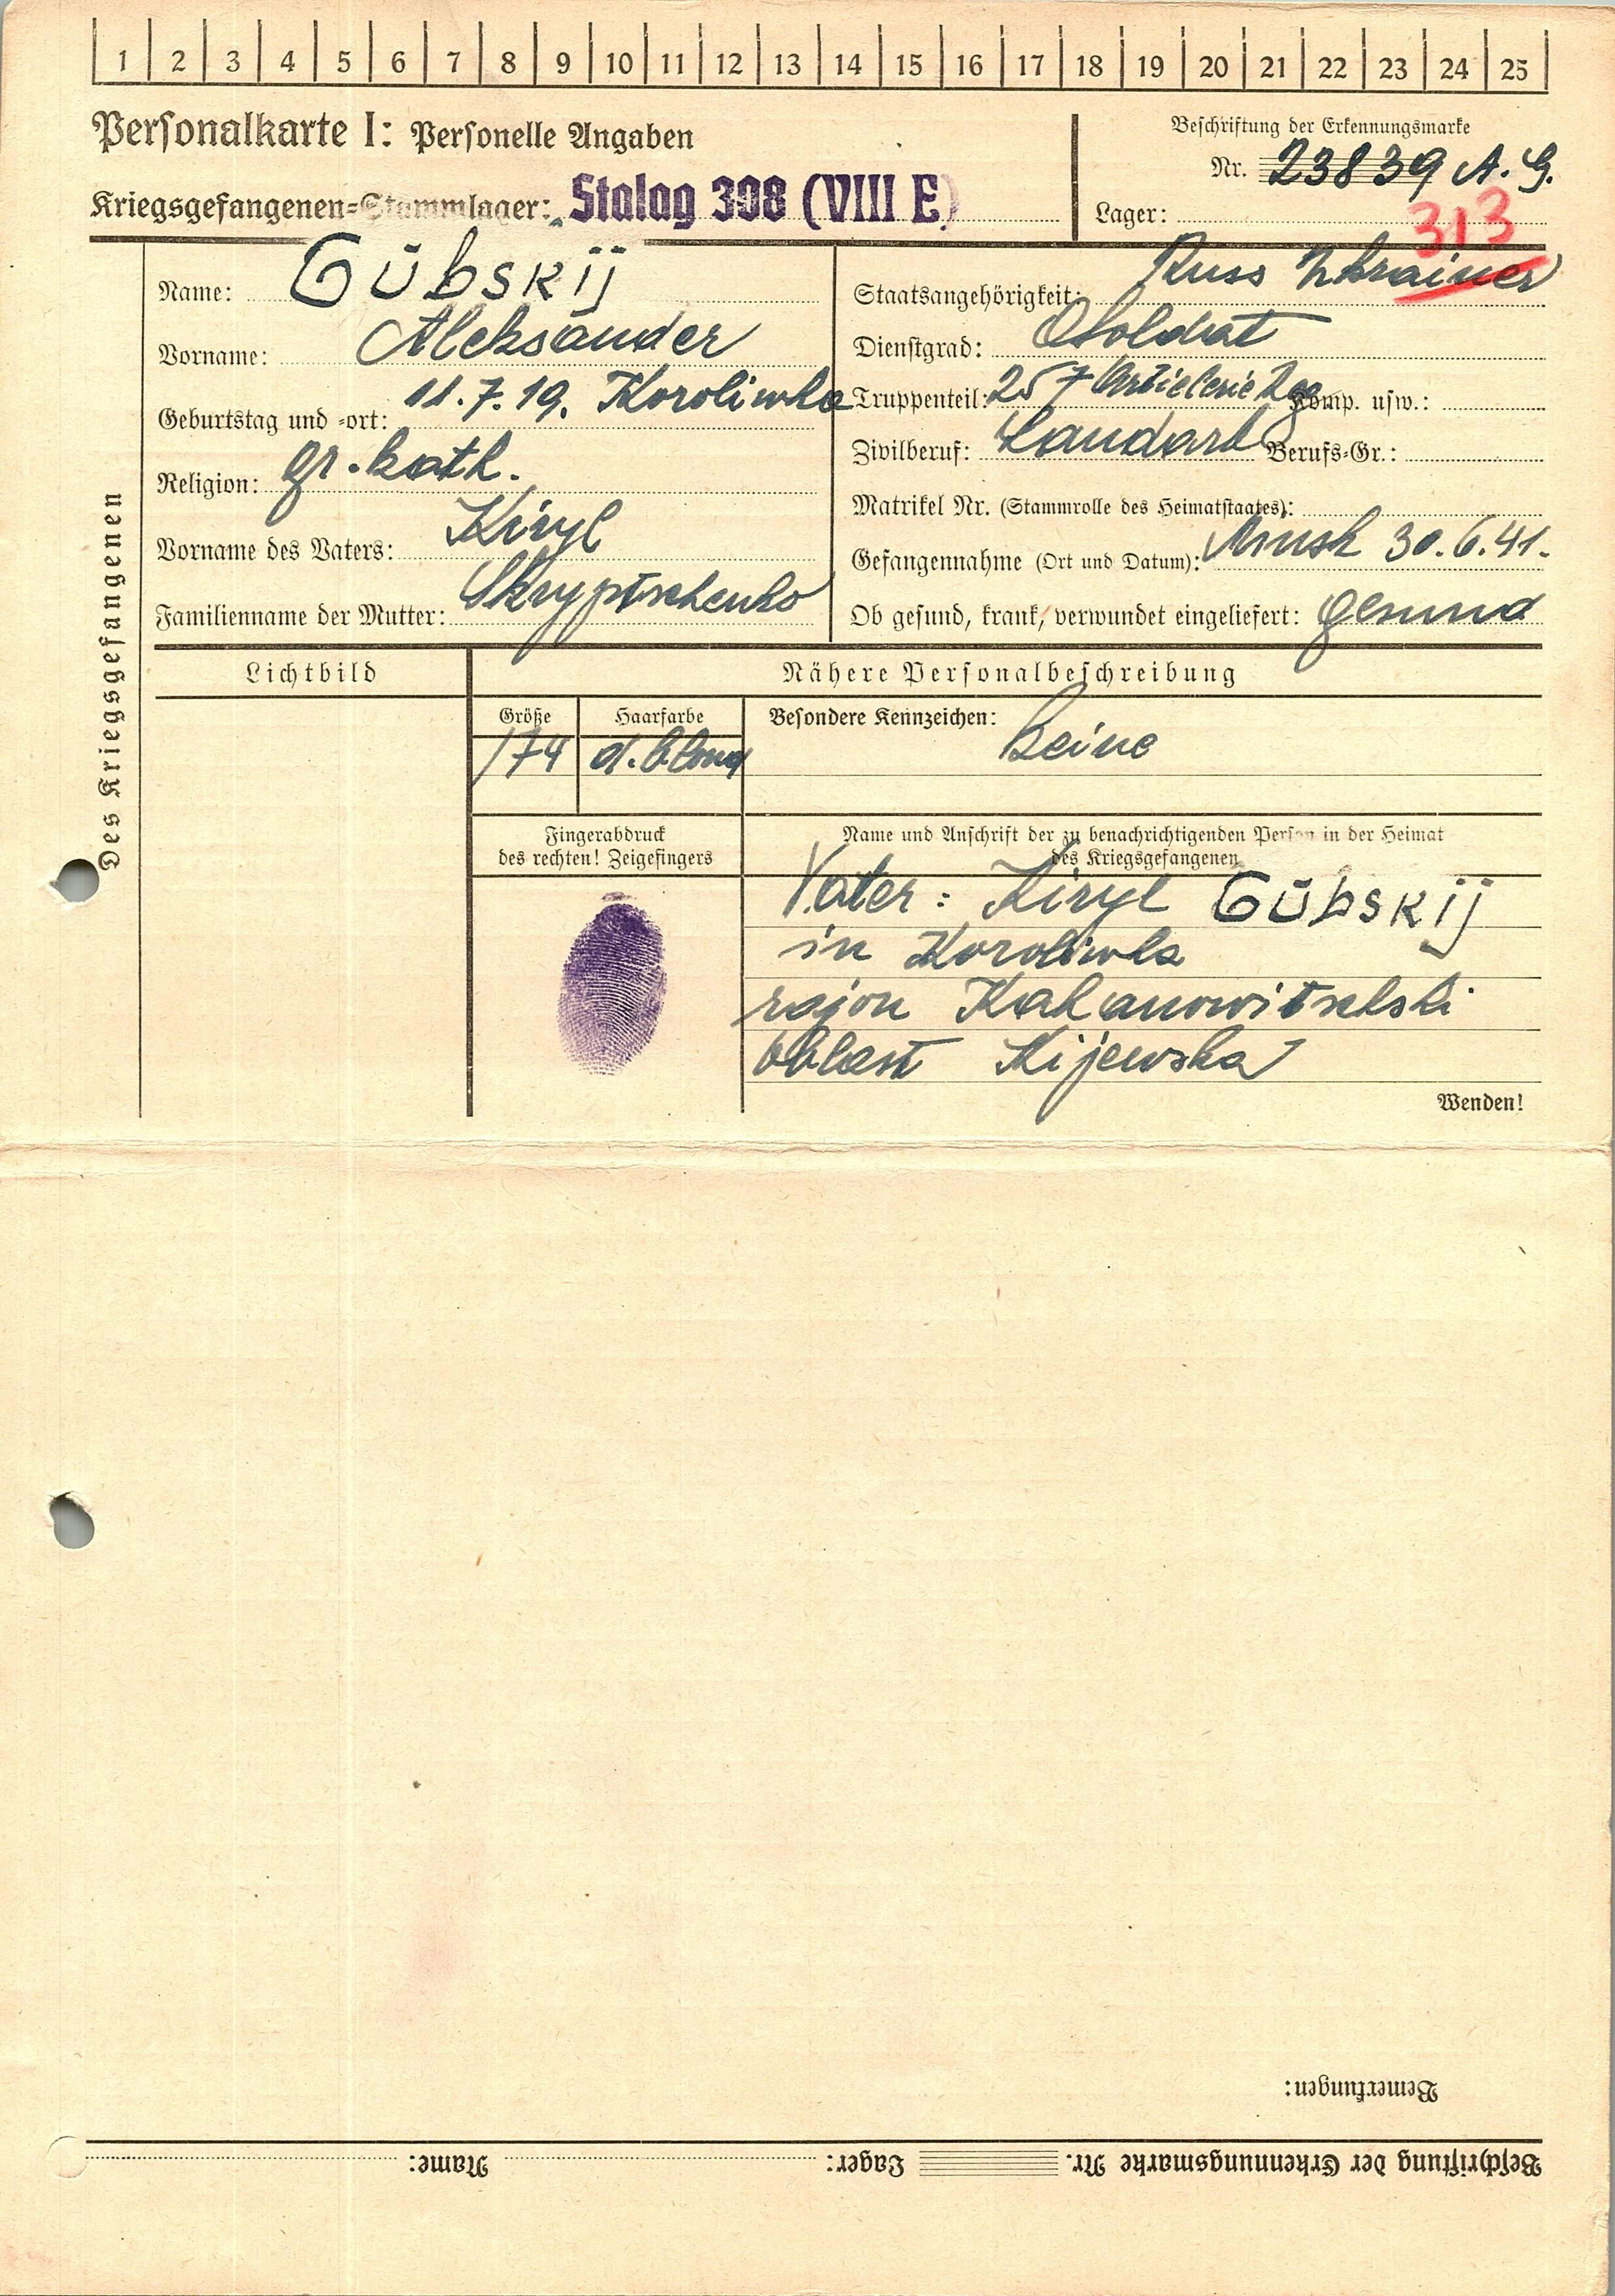 1 2 3 4 5 6 7 8 9 10 11 12 13 14 15 16 17 18 19 20 21 22 23 24 25
Personalkarte I: Personelle Angaben
Beschriftung der Erkennungsmarke
Nr. 23839 A. G.
Kriegsgefangenen-Stammlager: Stalag 308 (VIII E)
Lager: 313
Des Kriegsgefangenen
Name: Gūbskij
Vorname: Aleksander
Geburtstag und -ort: 11.7.19. Koroliwka
Religion: gr.kath.
Vorname des Vaters: Kiryl
Familienname der Mutter: Skryptschenko
Staatsangehörigkeit: Russ Ukrainer
Dienstgrad: Soldat
Truppenteil: 257 Artielerie Reg Komp. usw.:
Zivilberuf: Landarb Berufs-Gr.:
Matrikel Nr. (Stammrolle des Heimatstaates):
Gefangennahme (Ort und Datum): Minsk 30.6.41.
Ob gesund, krank, verwundet eingeliefert: gesund
Lichtbild
Nähere Personalbeschreibung
Größe Haarfarbe Besondere Kennzeichen: Keine
174 d. blond
Fingerabdruck
des rechten! Zeigefingers
Name und Anschrift der zu benachrichtigenden Person in der Heimat
des Kriegsgefangenen
Vater: Kiryl Gūbskij
in Koroliwka
rajon Kahanowitschski
oblast Kijewska
Wenden!
Bemerkungen:
Beschriftung der Erkennungsmarke Nr. Lager: Name: